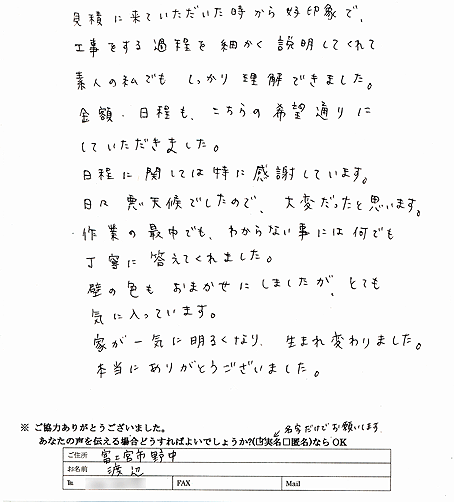 見積に来ていただいた時から好印象で、
工事をする過程を細かく説明してくれて
素人の私でもしっかり理解できました。
金額・日程も、こちらの希望通りに
していただきました。
日程に関しては特に感謝しています。
日々悪天候でしたので、大変だったと思います。
作業の最中でも、わからない事には何でも
丁寧に答えてくれました。
壁の色もおまかせにしましたが、とても
気に入っています。
家が一気に明るくなり、生まれ変わりました。
本当にありがとうございました。
※ ご協力ありがとうございました。
名字だけでお願いします
あなたの声を伝える場合どうすればよいでしょうか?(☑実名□匿名)なら OK
ご住所 富士宮市野中
お名前 渡辺
℡ FAX Mail